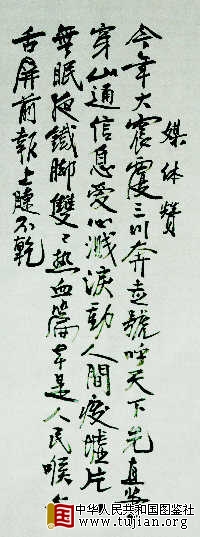 媒体贊
今年大震震三川奔走號呼天下先直
穿山通信息愛心濺淚動人間廢墟片〻
無眠夜鐵腳雙〻熱血篇幸是人民喉与
舌屏前報上睫不乾
中华人民共和国图鉴社
www.tujian.org